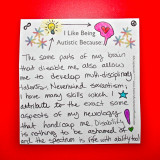 I Like Being
Autistic Because
The same parts of my brain
that disable me also allows
me to develop multi-disciplinary
talents. Nevermind savantism,
I have many skills which
attribute to the exact same
aspects of my neurology
that handicap me. Disability
is nothing to be ashamed of,
the spectrum is life with ability too!